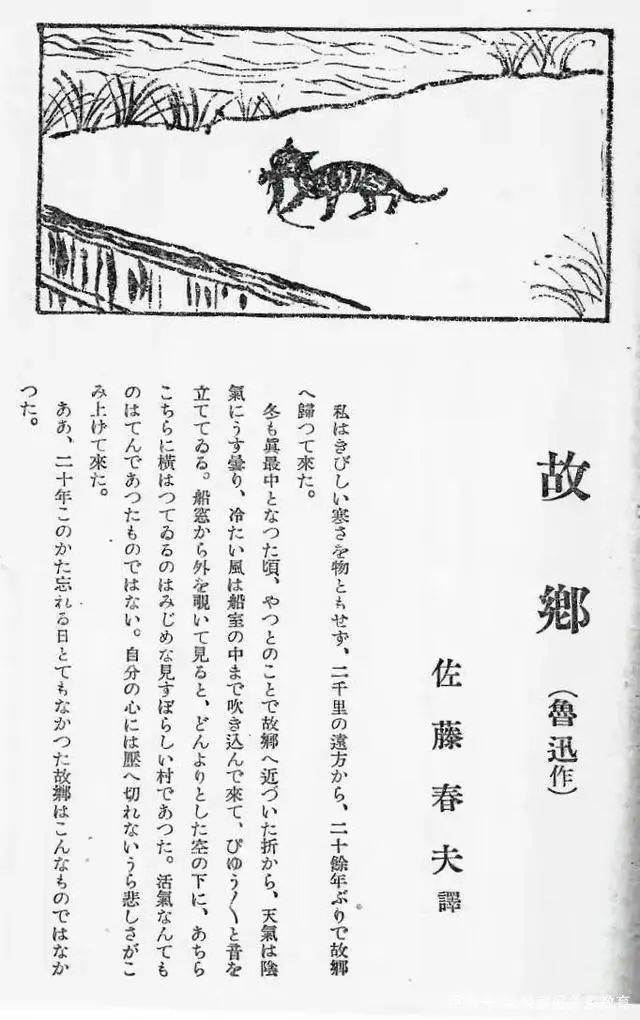 故鄕
(魯迅作)
佐藤春夫譯
私はきびしい寒さを物ともせず、二千里の遠方から、二十餘年ぶりで故鄕
へ歸つて來た。
冬も眞最中となつた頃、やつとのことで故鄕へ近づいた折から、天氣は陰
氣にうす曇り、冷たい風は船室の中まで吹き込んで來て、ぴゆう〳〵と音を
立ててゐる。船窓から外を覗いて見ると、どんよりとした空の下に、あちら
こちらに橫はつてゐるのはみじめな見すぼらしい村であつた。活氣なんても
のはてんであつたものではない。自分の心には壓へ切れないうら悲しさがこ
み上げて來た。
ああ、二十年このかた忘れる日とてもなかつた故鄕はこんなものではなか
つた。